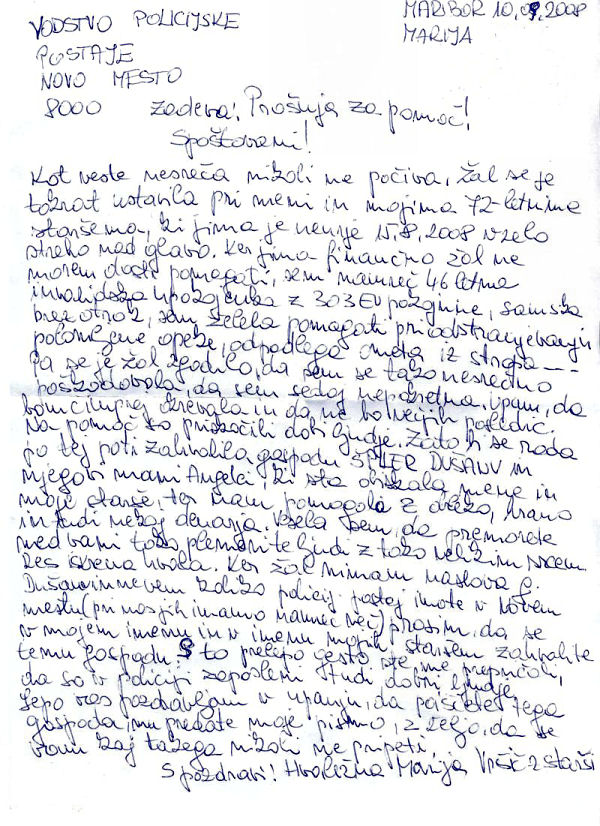 VODSTVO POLICIJSKE
POSTAJE
NOVO MESTO
8000
MARIBOR 10.09.2008
MARIJA
Zadeva: Prošnja za pomoč!
Spoštovani!
Kot veste nesreča nikoli ne počiva, žal se je
tokrat ustavila pri meni in mojima 72-letnima
staršema, ki jima je neurje 15.8.2008 vzelo
streho nad glavo. Ker jima finančno žal ne
morem dosti pomagati, sem namreč 46 letna
invalidska upokojenka z 303 EU pokojnine, samska
brez otrok, sem želela pomagati pri odstranjevanju
polomljene opeke, odpadlega ometa iz stropa ---
Pa se je žal zgodilo, da sem se tako nesrečno
poškodovala, da sem sedaj nepokretna. Upam, da
bom čimprej okrevala in da ne bo večjih posledic.
Na pomoč so priskočili dobri ljudje. Zato bi se rada
po tej poti zahvalila gospodu ŠPILER DUŠANU in
njegovi mami Angelci, ki sta obiskala mene in
moje starše, ter nam pomagala z obleko, hrano
in tudi nekaj denarja. Vesela sem, da premorete
med vami tako plemenite ljudi z tako velikim srcem.
Res iskrena hvala. Ker žal nimam naslova g.
Dušana in ne vem koliko policij. postaj imate v Novem
mestu (pri nas jih imamo namreč več) prosim, da se
v mojem imenu in v imenu mojih staršev zahvalite
temu gospodu. S to prelepo gesto ste me prepričali,
da so v policiji zaposleni tudi dobri ljudje.
Lepo vas pozdravljam v upanju, da poiščete tega
gospoda, mu predate moje pismo, z željo, da se
vam kaj takega nikoli ne pripeti.
S pozdravi! Hvaležna Marija Vršič z starši